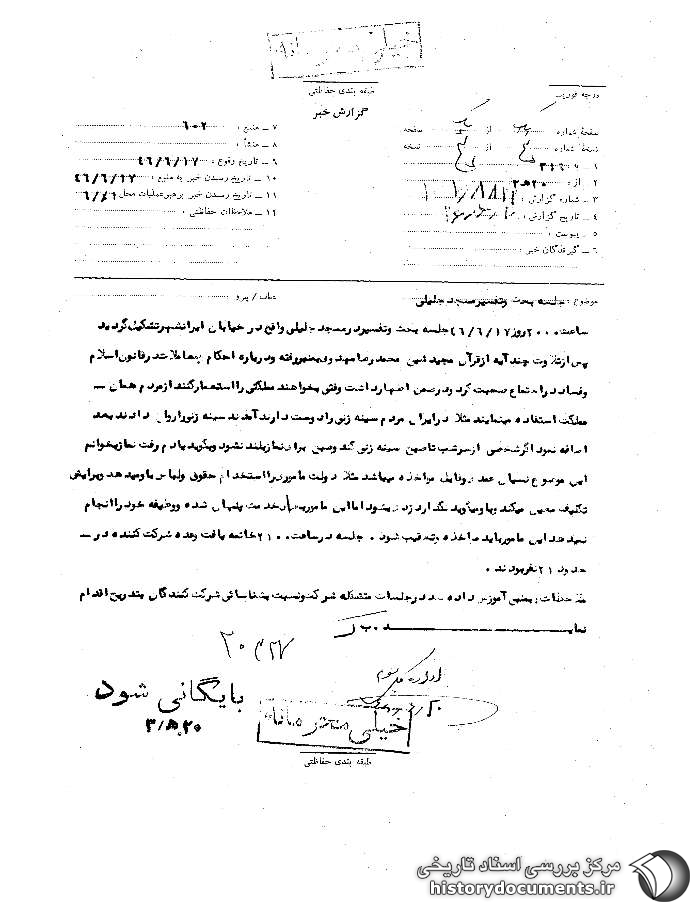 خیلی محرمانه
طبقه بندی حفاظتی
درجه فوریت
گزارش خبر
صفحه شماره از صفحه
نسخه شماره از نسخه
۱ – به ۳۱۶
۲ – از : ۲۰ه۲
۳ – شماره گزارش :
۴ – تاریخ گزارش :
۵ – پیوست :
۶ – گیرندگان خبر :
۷ – منبع : ۶۰۲
۸ – منشأ :
۹ – تاریخ وقوع : ۴۶/۶/۱۷
۱۰ – تاریخ رسیدن خبر به منبع : ۴۶/۶/۱۷
۱۱ – تاریخ رسیدن خبر برهبر عملیات محل
۱۲ – ملاحظات حفاظتی :
موضوع : جلسه بحث وتفسیر مسجد جلیلی
عطف / پیرو
ساعت ۲۰۰۰ روز ۴۶/۶/۱۷ جلسه بحث وتفسیر در مسجد جلیلی واقع در خیابان ایرانشهر تشکیل گردید
پس از تلاوت چند آیه از قرآن مجید شیخ محمد رضا مهدوی بمنبر رفته و درباره احکام و معاملات در قانون اسلام
وفساد در اجتماع صحبت کرد و در ضمن اظهار داشت وقتی بخواهند مملکتی را استعمار کنند از مردم همان –
مملکت استفاده مینمایند مثلا در ایران مردم سینه زنی را دوست دارند آمدند سینه زنی را رواج دادند بعد
اضافه نمود اگر شخصی از سر شب تا صبح سینه زنی کند وصبح برای نماز بلند نشود و بگوید یادم رفت نماز بخوانم
این موضوع نسیان عمدی وقابل مواخذه میباشد مثلا دولت ماموری را استخدام حقوق ولباس باو میدهد و برایش
تکلیف معین میکند وباو میگوید نگذار دزدی بشود اما این مامور بعد از خدمت پنهان شده ووظیفه خود را انجام
نمیدهد این مامور باید مواخذه وتعقیب شود . جلسه در ساعت ۲۱۰۰ خاتمه یافت وعده شرکت کننده در –
حدود ۲۱ نفر بودند .
ملاحظات : بمنبع آموزش داده شد در جلسات متشکله شرکت ونسبت بشناسائی شرکت کنندگان بتدریج اقدام
نماید
اداره یکم سوم
بایگانی شود
۲۰ه/۳
خیلی محرمانه
طبقه بندی حفاظتی
مرکز بررسی اسناد تاریخی
historydocuments.ir